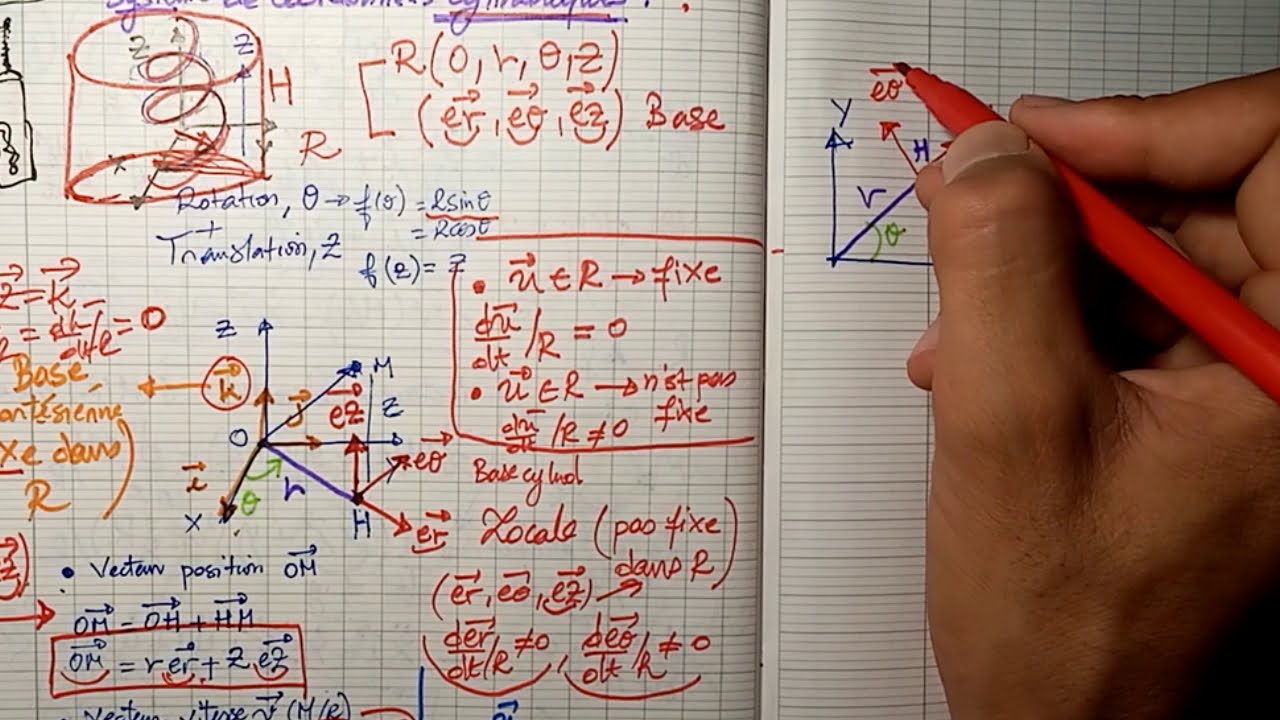 Système de coordonnées cylindriques :
Z
Z
H
X
Y
R
R(O, r, θ, Z)
(er, eθ, ez) Base
Rotation, θ → f(θ) = R sinθ
+
= R cosθ
Translation, Z
f(z) = Z
z = k
= dk/dt/R = 0
Base
fixe dans
R
Z
k
O
J
M
Z
ez
eθ
i
θ
r
X
H
er
• u ∈ R → fixe
du/dt /R = 0
• u ∈ R → n'est pas
fixe
du/dt /R ≠ 0
Base cylind
Locale (pas fixe
dans R)
(er, eθ, ez)
der/dt/R ≠ 0, deθ/dt/R ≠ 0
• Vecteur position OM
OM = OH + HM
OM = r er + Z ez
• Vecteur vitesse V (M/R)
eθ
Y
H
r
θ